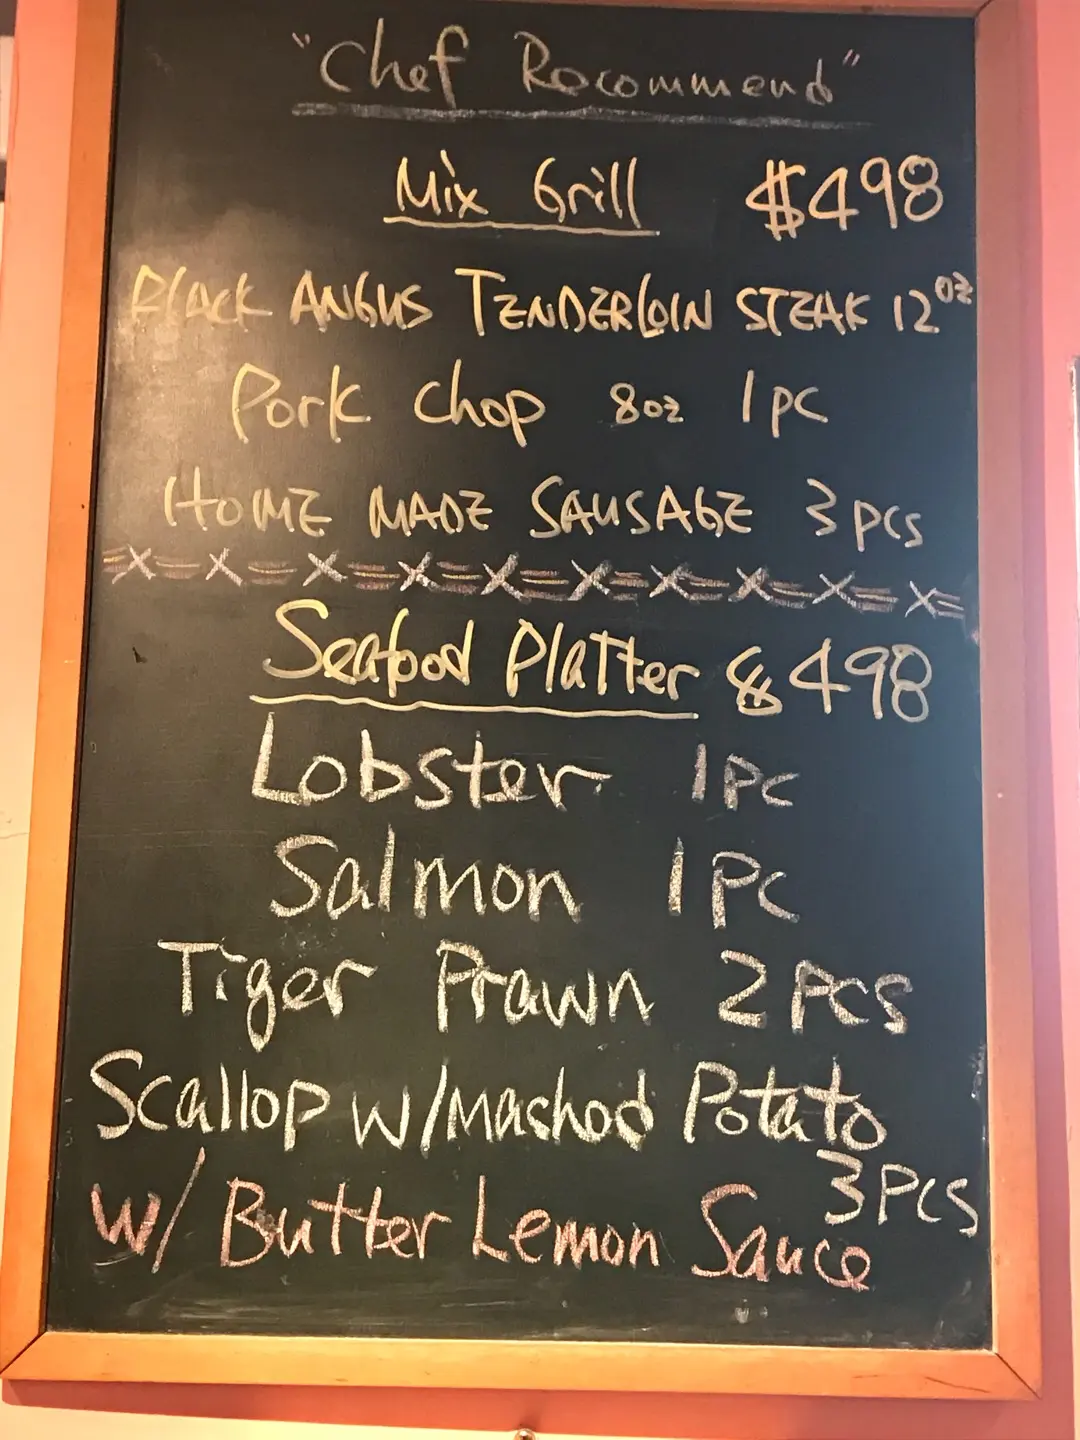 "Chef Recommend"
Mix Grill $498
BLACK ANGUS TENDERLOIN STEAK 12oz
Pork Chop 8oz 1pc
HOME MADE SAUSAGE 3pcs
=X=X=X=X=X=X=X=X=X=X=
Seafood Platter $498
Lobster 1pc
Salmon 1pc
Tiger Prawn 2pcs
Scallop w/mashod Potato
3pcs
w/ Butter Lemon Sauce